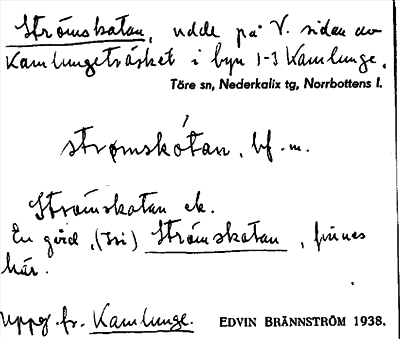 Strömskatan, udde på V. sidan av
Kamlungeträsket i byn 1-3 Kamlunge.
Töre sn, Nederkalix tg, Norrbottens l.
strømskátan, bf. m.
Strömskatan ek.
En gård, (Isi) Strömskatan, finnes
här.
Uppg. fr. Kamlunge. EDVIN BRÄNNSTRÖM 1938.